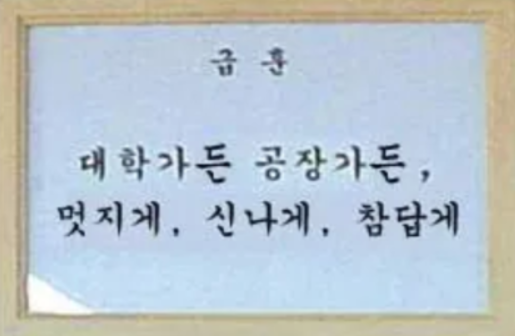 급 훈
대학가든 공장가든,
멋지게, 신나게, 참답게